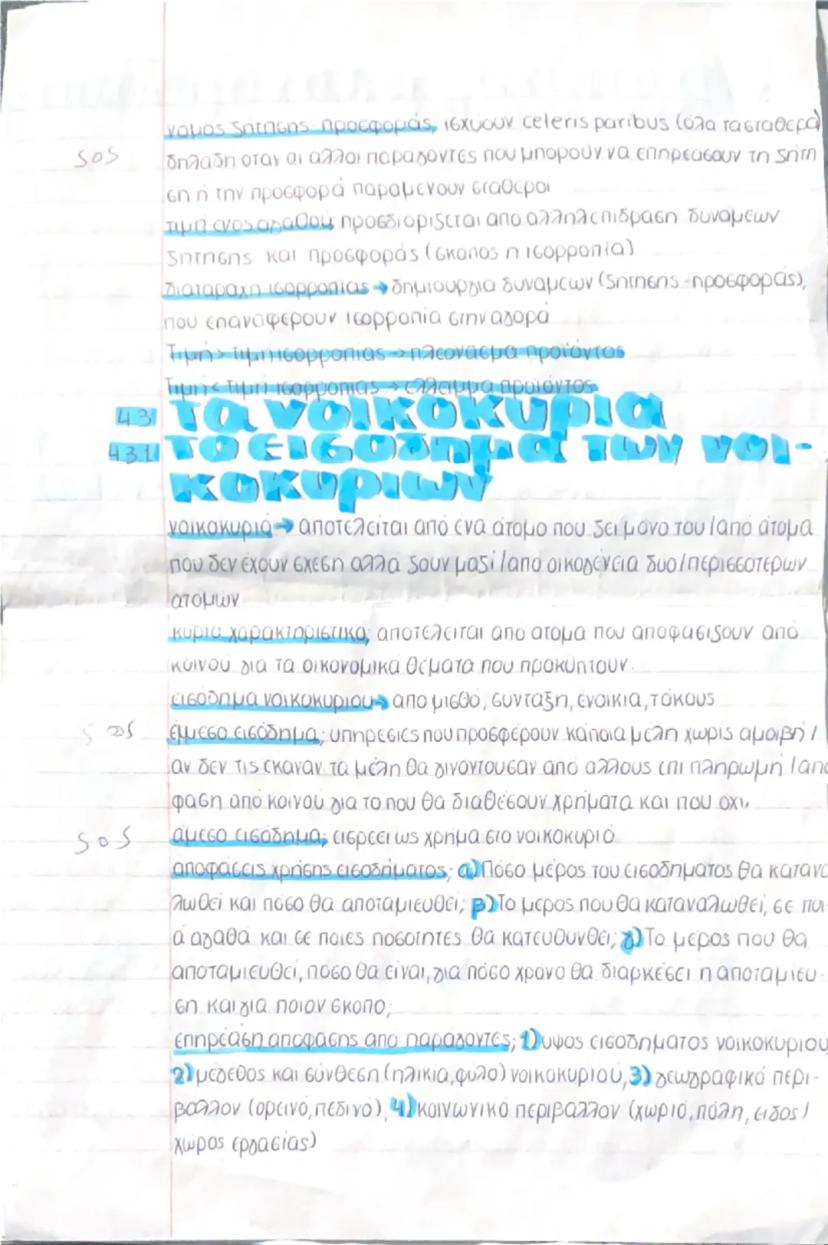 νόμος ζήτησης-προσφοράς, ισχύουν celeris paribus (όλα τα σταθερά)
SOS
δηλαδή όταν οι άλλοι παράγοντες που μπορούν να επηρεάσουν τη ζήτη
ση ή την προσφορά παραμένουν σταθεροί
τιμή ενός αγαθού, προσδιορίζεται από αλληλεπίδραση δυνάμεων
ζήτησης και προσφοράς (σκοπός η ισορροπία)
διαταραχή ισορροπίας → δημιουργία δυνάμεων (ζήτησης-προσφοράς),
που επαναφέρουν ισορροπία στην αγορά
Τιμή > τιμή ισορροπίας → πλεόνασμα προϊόντος
Τιμή < τιμή ισορροπίας → έλλειμμα προϊόντος
4.3 τα νοικοκυριά
4.3.1 το εισόδημα των νοι-
κοκυριών
νοικοκυριό → αποτελείται από ένα άτομο που ζει μόνο του / από άτομα
που δεν έχουν σχέση αλλά ζουν μαζί / από οικογένεια δύο/περισσότερων
ατόμων
κύριο χαρακτηριστικό; αποτελείται από άτομα που αποφασίζουν από
κοινού για τα οικονομικά θέματα που προκύπτουν.
εισόδημα νοικοκυριού → από μισθό, σύνταξη, ενοίκια, τόκους
SOS
έμμεσο εισόδημα; υπηρεσίες που προσφέρουν κάποια μέλη χωρίς αμοιβή /
αν δεν τις έκαναν τα μέλη θα γινόντουσαν από άλλους επί πληρωμή / από
φαση από κοινού για το που θα διαθέσουν χρήματα και που όχι,
SOS
άμεσο εισόδημα; εισρέει ως χρήμα στο νοικοκυριό
αποφάσεις χρήσης εισοδήματος; α) Πόσο μέρος του εισοδήματος θα κατανα
λωθεί και πόσο θα αποταμιευθεί; β) Το μέρος που θα καταναλωθεί, σε ποι
ά αγαθά και σε ποιες ποσότητες θα κατευθυνθεί; γ) Το μέρος που θα
αποταμιευθεί, πόσο θα είναι, για πόσο χρόνο θα διαρκέσει η αποταμίευ-
ση και για ποιον σκοπό;
επηρέαση απόφασης από παράγοντες; 1) ύψος εισοδήματος νοικοκυριού
2) μέγεθος και σύνθεση (ηλικία, φύλο) νοικοκυριού, 3) γεωγραφικό περι-
βάλλον (ορεινό, πεδινό), 4) κοινωνικό περιβάλλον (χωριό, πόλη, είδος /
χώρος εργασίας)